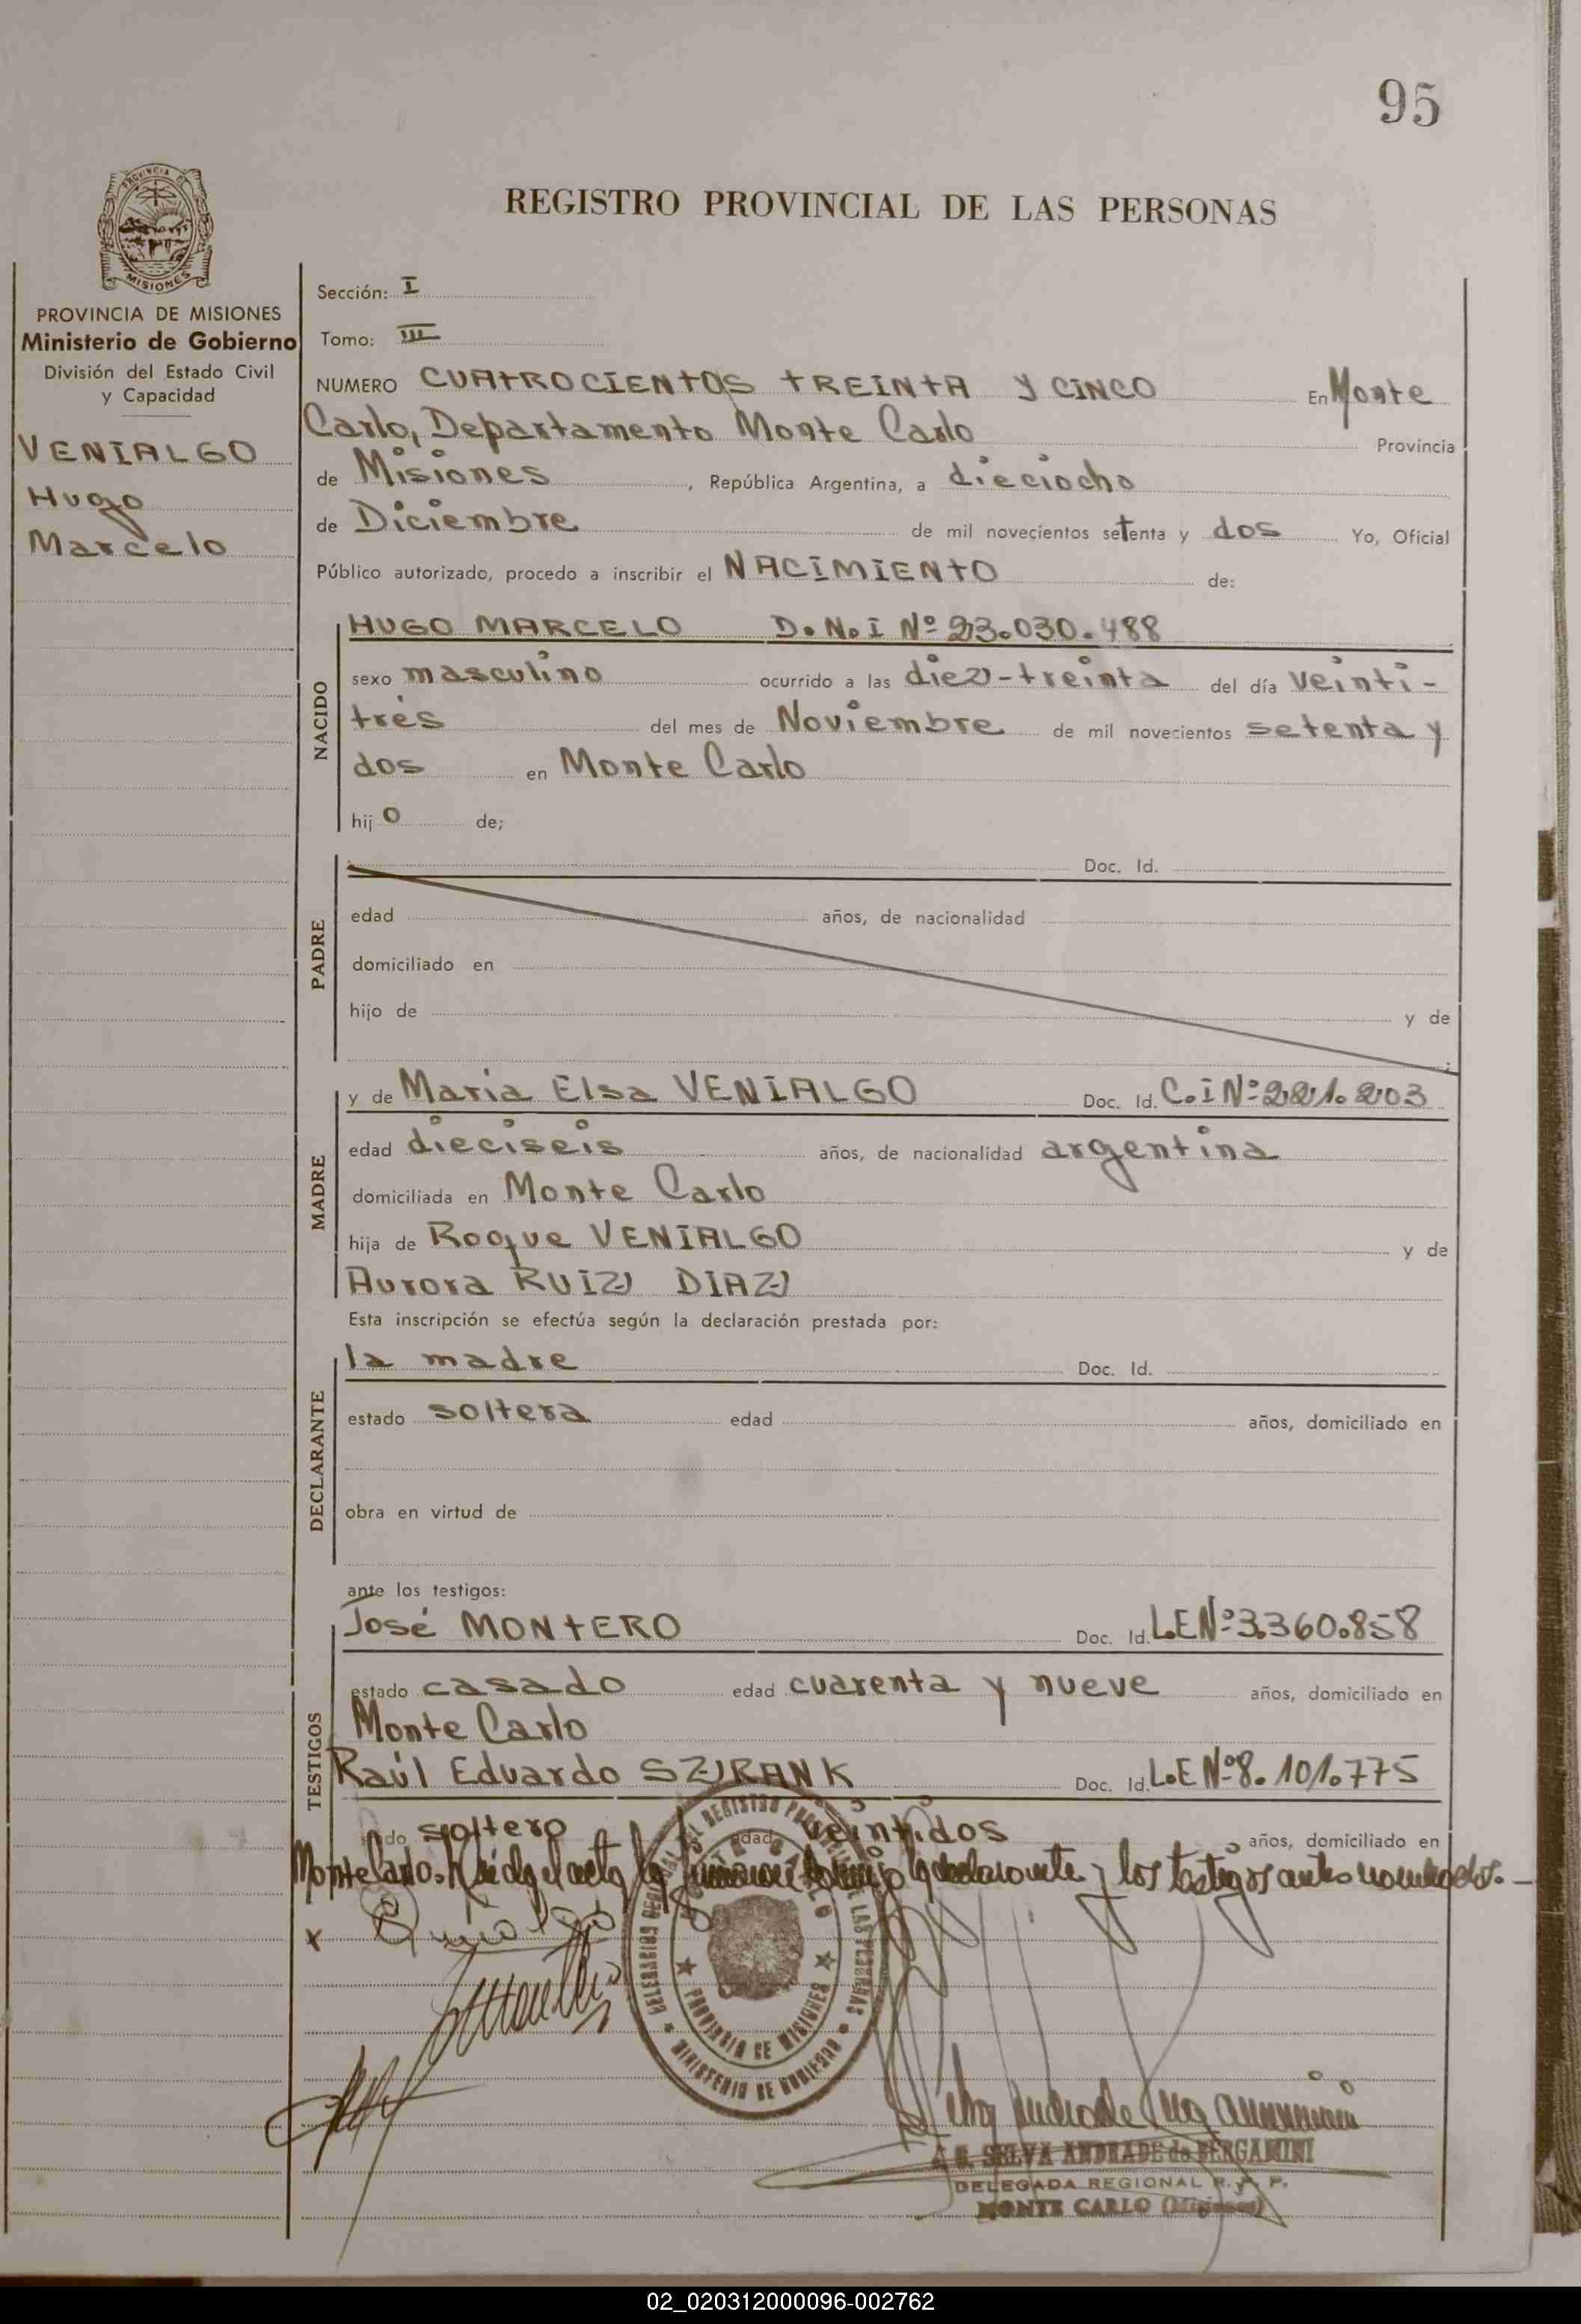 95
PROVINCIA DE
MISIONES
REGISTRO PROVINCIAL DE LAS PERSONAS
PROVINCIA DE MISIONES
Ministerio de Gobierno
División del Estado Civil
y Capacidad
VENIALGO
Hugo
Marcelo
Sección: I
Tomo: III
NUMERO CUATROCIENTOS TREINTA Y CINCO En Monte
Carlo, Departamento Monte Carlo Provincia
de Misiones, República Argentina, a dieciocho
de Diciembre de mil novecientos setenta y dos Yo, Oficial
Público autorizado, procedo a inscribir el NACIMIENTO de:
NACIDO
HUGO MARCELO D.N.I Nº 23.030.488
sexo masculino ocurrido a las diez-treinta del día veinti-
trés del mes de Noviembre de mil novecientos setenta y
dos en Monte Carlo
hijo de;
PADRE
Doc. Id.
edad años, de nacionalidad
domiciliado en
hijo de y de
MADRE
y de María Elsa VENIALGO Doc. Id. C.I Nº 221.203
edad dieciseis años, de nacionalidad argentina
domiciliada en Monte Carlo
hija de Roque VENIALGO y de
Aurora RUIZ DIAZ
Esta inscripción se efectúa según la declaración prestada por:
DECLARANTE
la madre Doc. Id.
estado soltera edad años, domiciliado en
obra en virtud de
ante los testigos:
TESTIGOS
José MONTERO Doc. Id. L.E Nº 3.360.858
estado casado edad cuarenta y nueve años, domiciliado en
Monte Carlo
Raúl Eduardo SZIRANK Doc. Id. L.E Nº 8.101.775
soltero edad veintidos años, domiciliado en
Monte Carlo. Leida el acta la firman conmigo la declarante y los testigos antes nombrados.-
x
PROVINCIA DE MISIONES
MINISTERIO DE GOBIERNO
SELVA ANDRADE de BERGAMINI
DELEGADA REGIONAL R. P. P.
MONTE CARLO (Misiones)
02_020312000096-002762